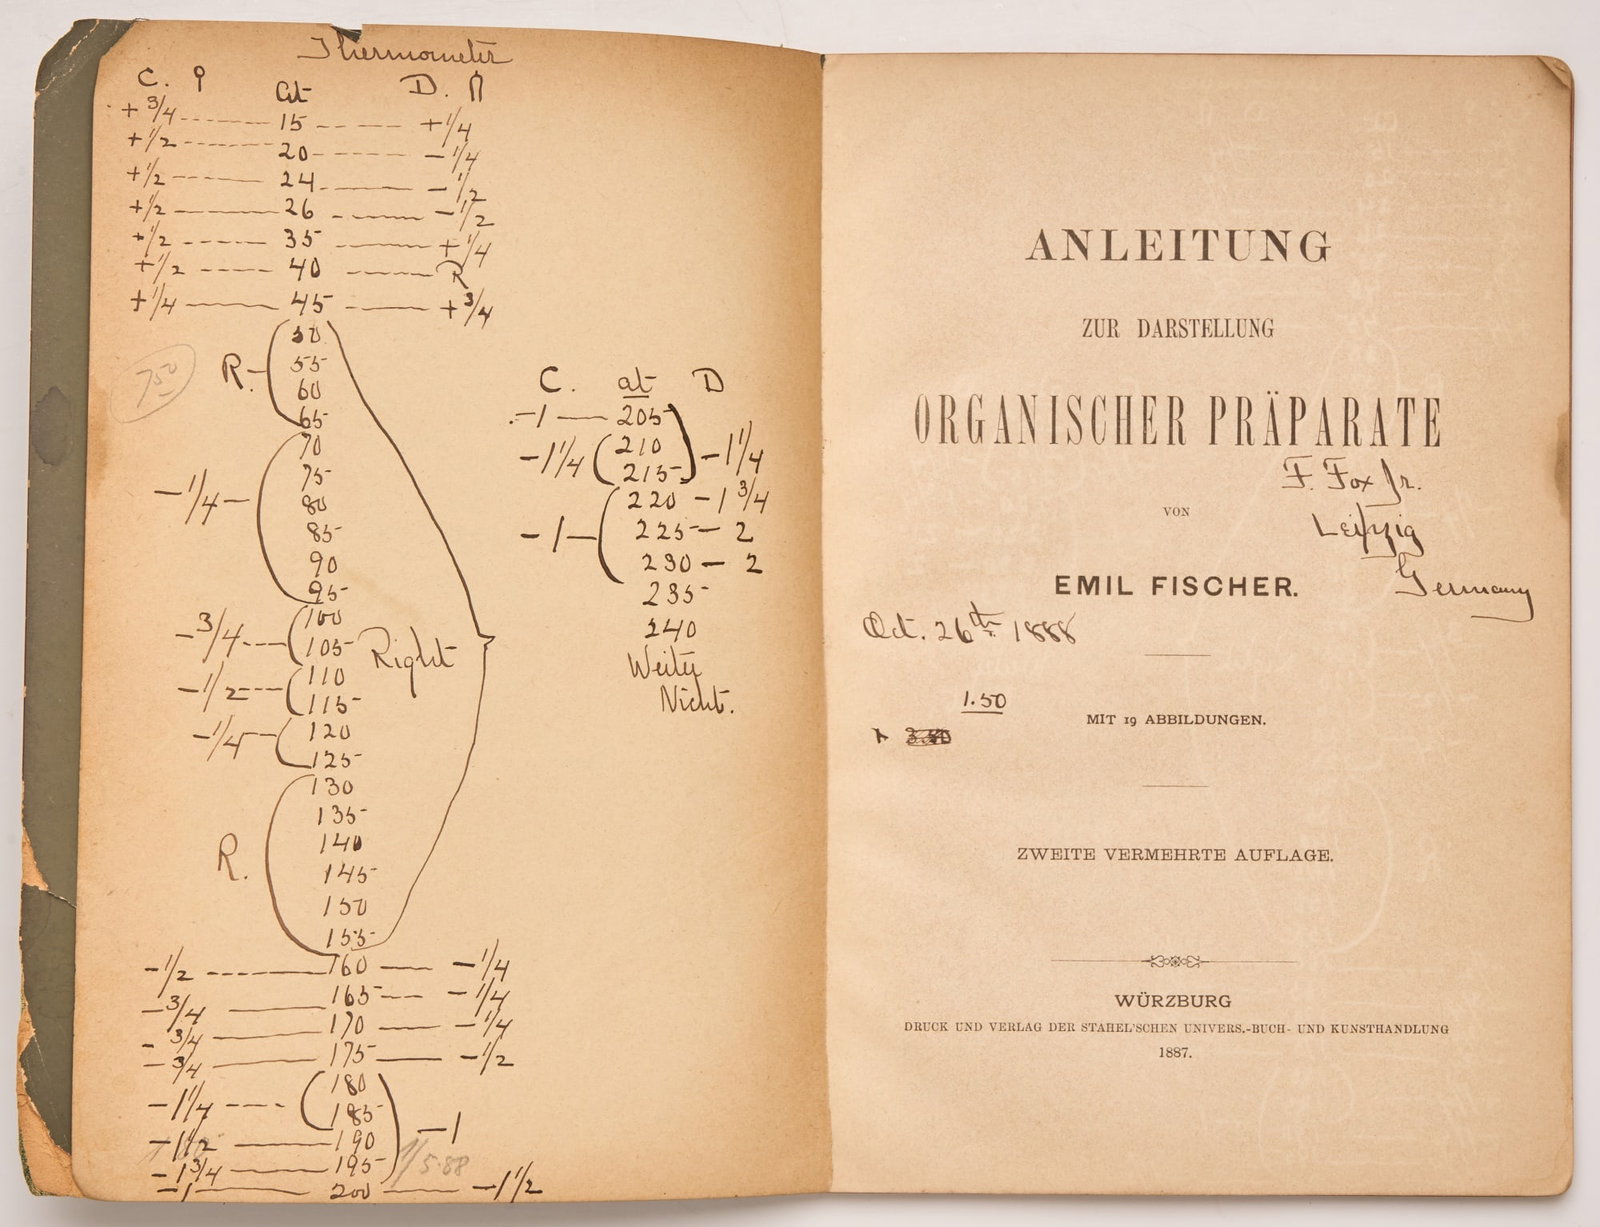 Thermometer
C. at D.
+3/4 ------ 15 ------ +1/4
+1/2 ------ 20 ------ -1/4
+1/2 ------ 24 ------ -1/2
+1/2 ------ 26 ------ -1/2
+1/2 ------ 35 ------ +1/4
+1/2 ------ 40 ------ R
+1/4 ------ 45 ------ +3/4
50
55
R. 60
65
70
75
-1/4 80
85
90
95
-3/4 100
105 Right
-1/2 110
115
-1/4 120
125
130
135
R. 140
145
150
155
-1/2 ------ 160 ------ -1/4
-3/4 ------ 165 ------ -1/4
-3/4 ------ 170 ------ -1/4
-3/4 ------ 175 ------ -1/2
-1 1/4 ------ 180
185
-1 1/2 ------ 190 -1
-1 3/4 ------ 195
-1 ------ 200 ------ -1 1/2
750
C. at D
-1 — 205
-1 1/4 210 -1 1/4
215
220 - 1 3/4
-1 225 - 2
230 - 2
235
240
Weiter
Nicht.
ANLEITUNG
ZUR DARSTELLUNG
ORGANISCHER PRÄPARATE
F. Fox Jr.
VON
Leipzig
EMIL FISCHER.
Germany
Oct. 26th. 1888
1.50
MIT 19 ABBILDUNGEN.
ZWEITE VERMEHRTE AUFLAGE.
WÜRZBURG
DRUCK UND VERLAG DER STAHEL'SCHEN UNIVERS.-BUCH- UND KUNSTHANDLUNG
1887.